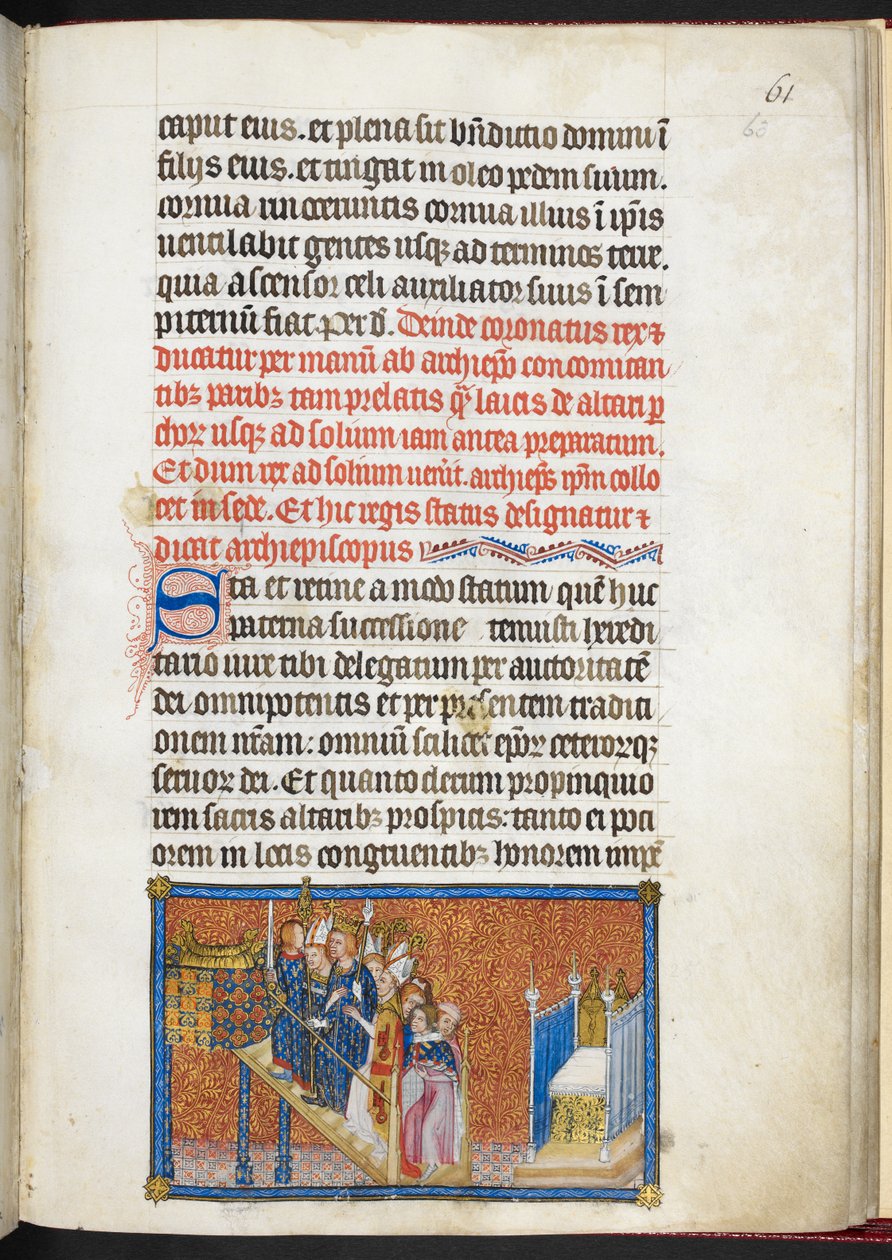 61
60
caput eius. et plena sit bn̄dictio domini ī
filijs eius. et tingat in oleo pedem suum.
cornua rinocerontis cornua illius ī ip̄is
uentilabit gentes usqꝫ ad terminos terre.
quia ascensor celi auxiliator suus ī sem
piternū fiat. Per d̄. Deinde coronatus rex ⁊
ducatur per manū ab archiep̄o concomitan
tibꝫ paribꝫ tam prelatis qᷓ laicis de altari ꝑ
choꝝ usqꝫ ad solium iam antea preparatum.
Et dum rex ad solium uen̄it. archiep̄s ip̄m collo
cet in sede. Et hic regis status designatur ⁊
dicat archiepiscopus
Sta et retine a modo statum quē huc
paterna successione tenuisti heredi
tario iure tibi delegatum per auctoritatē
dei omnipotentis et per presentem traditi
onem nr̄am: omniū scilicet ep̄oꝝ ceteroꝝqꝫ
seruoꝝ dei. Et quanto clerum propinquio
rem sacris altaribꝫ prospicis: tanto ei poci
orem in locis congruentibꝫ honorem impē